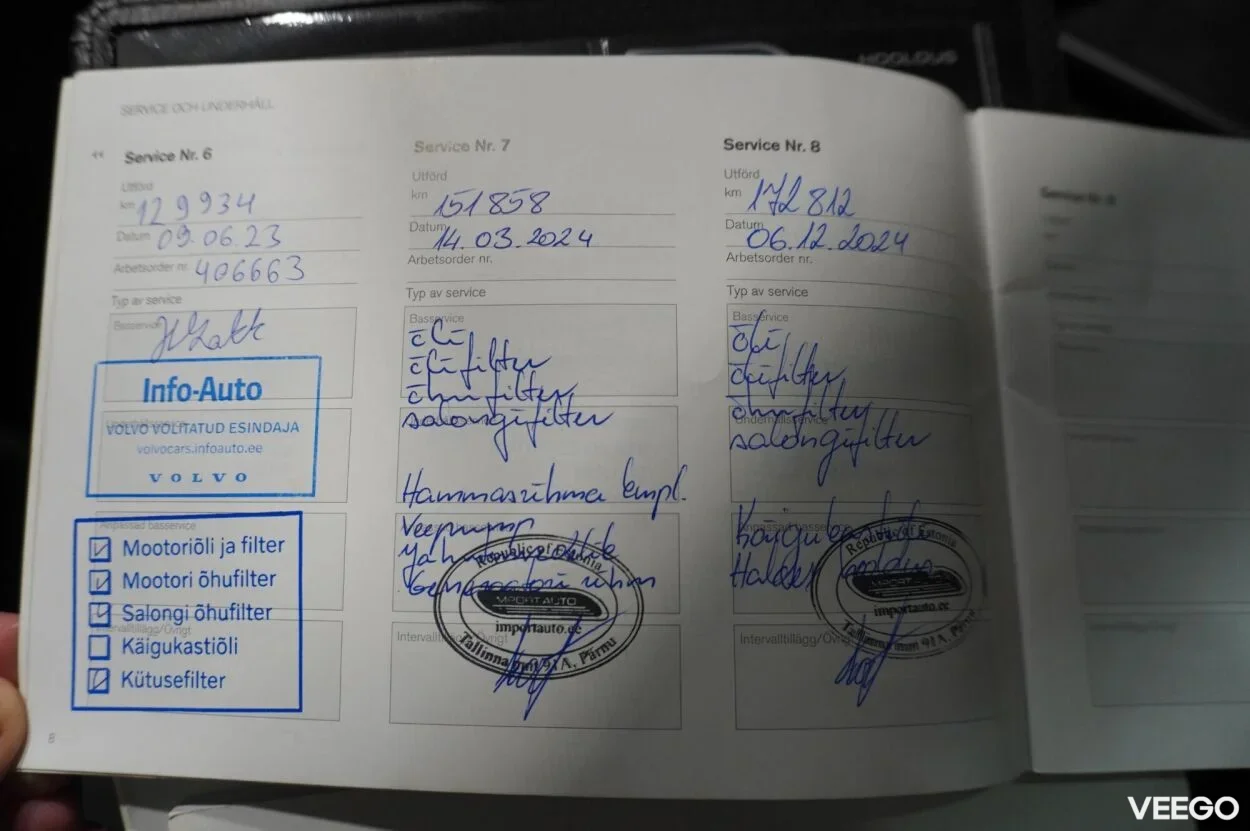 SERVICE OCH UNDERHÅLL
Service Nr. 6
Utförd
km 129934
Datum 09.06.23
Arbetsorder nr. 406663
Typ av service
Basservice
Info-Auto
VOLVO VOLITATUD ESINDAJA
volvocars.infoauto.ee
VOLVO
Anpassad basservice
Mootoriõli ja filter
Mootori õhufilter
Salongi õhufilter
Intervalltillägg/Övrigt
Käigukastiõli
Kütusefilter
8
Service Nr. 7
Utförd
km 151858
Datum 14.03.2024
Arbetsorder nr.
Typ av service
Basservice
õli
õlifilter
õhufilter
salongifilter
Hammasrihma kmpl.
Veepump
Generaatori rihm
Republic of Estonia
IMPORTAUTO
importauto.ee
Intervalltillägg/Övrigt
Tallinna mnt 91A, Pärnu
Service Nr. 8
Utförd
km 172812
Datum 06.12.2024
Arbetsorder nr.
Typ av service
Basservice
õli
õlifilter
õhufilter
Underhållsservice
salongifilter
Anpassad basservice
Republic of Estonia
IMPORTAUTO
importauto.ee
Intervalltillägg/Övrigt
Tallinna mnt 91A, Pärnu
VEEGO